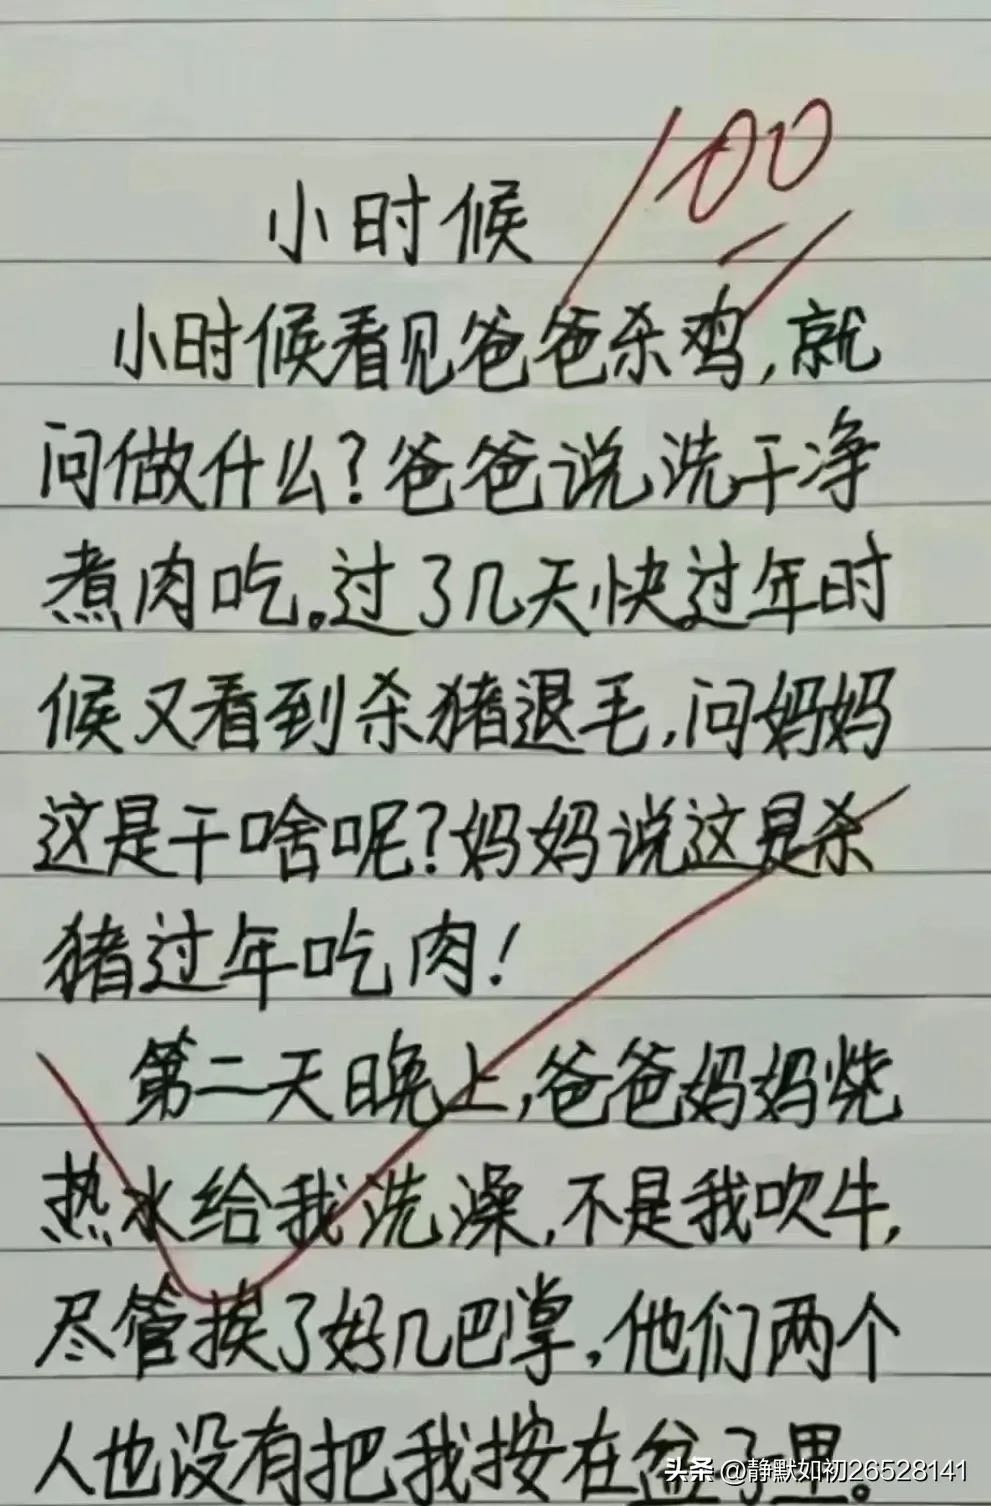 100
小时候
小时候看见爸爸杀鸡,就
问做什么?爸爸说洗干净
煮肉吃。过了几天快过年时
候又看到杀猪退毛,问妈妈
这是干啥呢?妈妈说这是杀
猪过年吃肉!
第二天晚上,爸爸妈妈烧
热水给我洗澡,不是我吹牛,
尽管挨了好几巴掌,他们两个
人也没有把我按在盆子里。
头条 @静默如初26528141